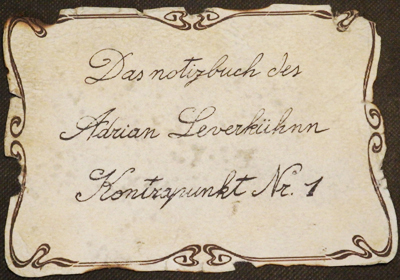 Das notizbuch des
Adrian Leverkühnn
Kontrapunkt Nr. 1